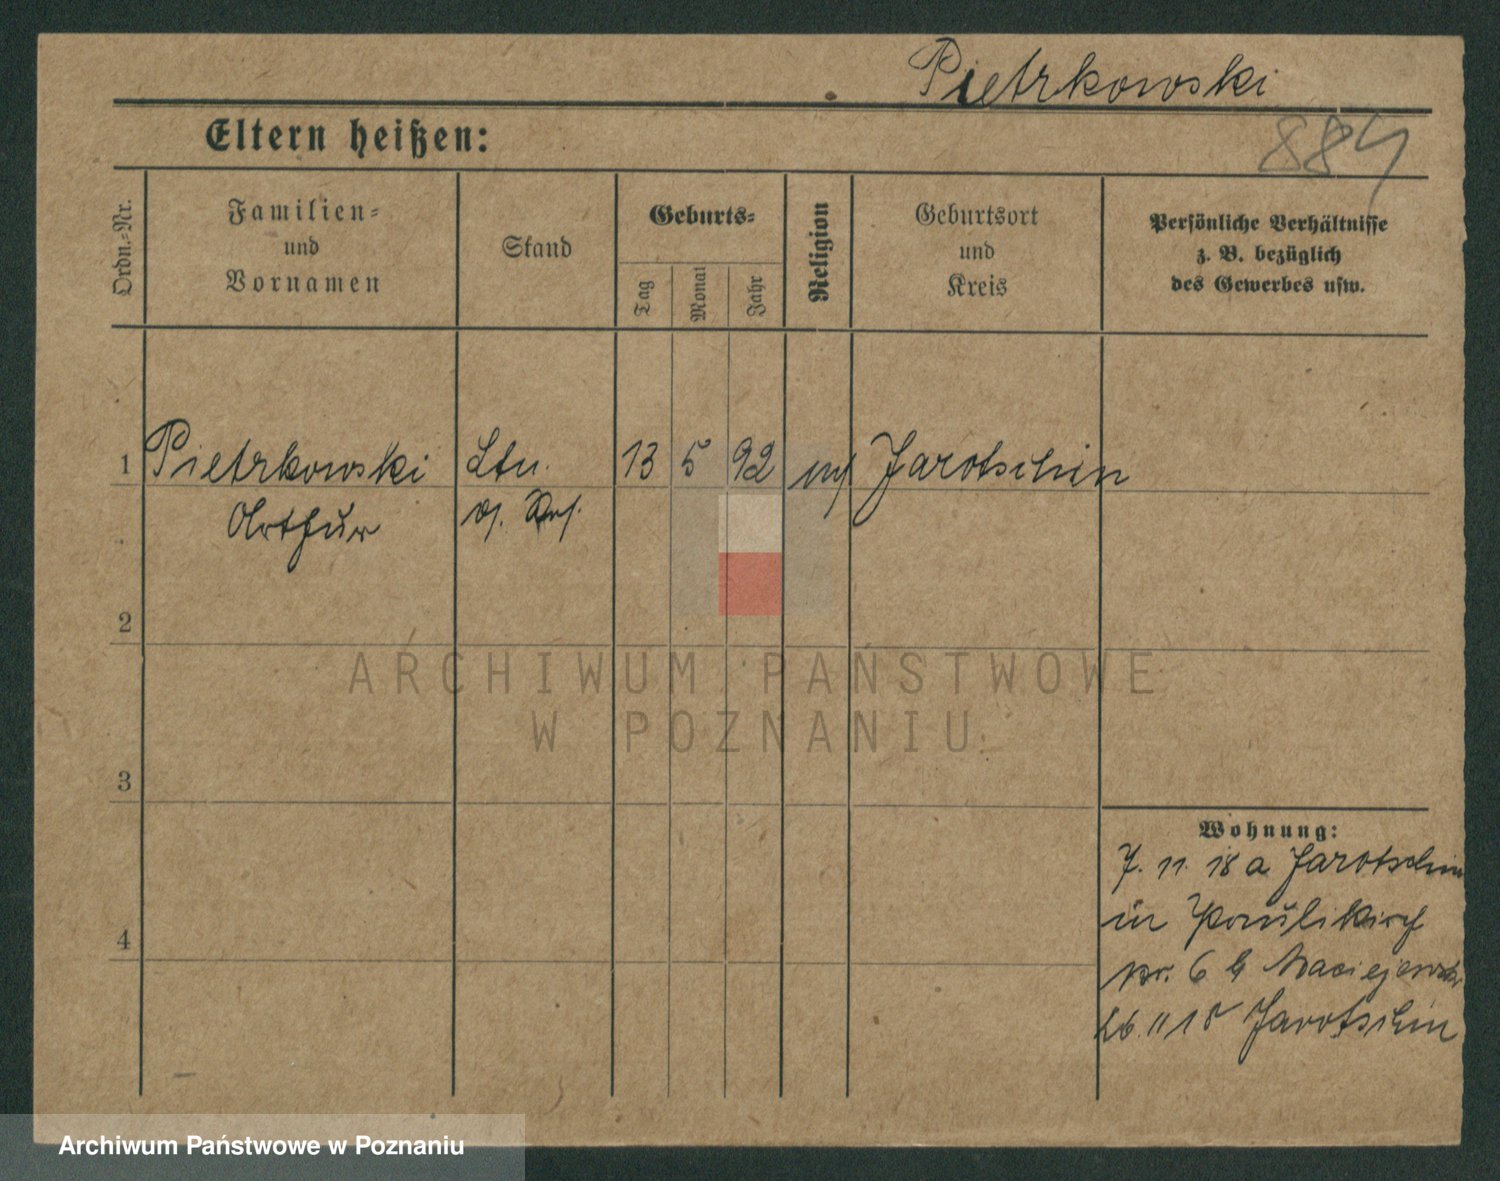 Pietrkowski
884
Eltern heißen:
Ordn.-Nr.
Familien-
und
Vornamen
Stand
Geburts-
Tag
Monat
Jahr
Religion
Geburtsort
und
Kreis
Persönliche Verhältnisse
z. B. bezüglich
des Gewerbes usw.
1 Pietrkowski Ltn. 13 5 92 Jarotschin
Arthur d. Res.
2
3
4
ARCHIWUM PAŃSTWOWE
W POZNANIU
Wohnung:
7. 11. 18 a Jarotschin
in Paulikirch
nr. 6 b Maciejewski
26 11 18 Jarotschin
Archiwum Państwowe w Poznaniu